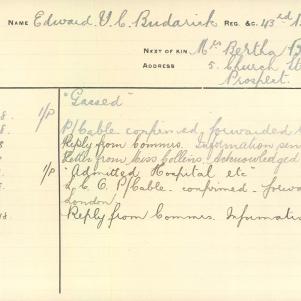 NAME Edward V. C. Budarick REG. &C. 43rd
NEXT OF KIN Mrs Bertha B
ADDRESS 5, Church St
Prospect.
"Gassed"
8. 1/P
8. P/Cable confirmed, forwarded
8 Reply from Commrs. Information sen
Letter from Miss Collins, acknowledged
1/P "Admitted Hospital etc"
L. C. O. P/Cable. confirmed. forw
London,
18. Reply from Commrs. Informati